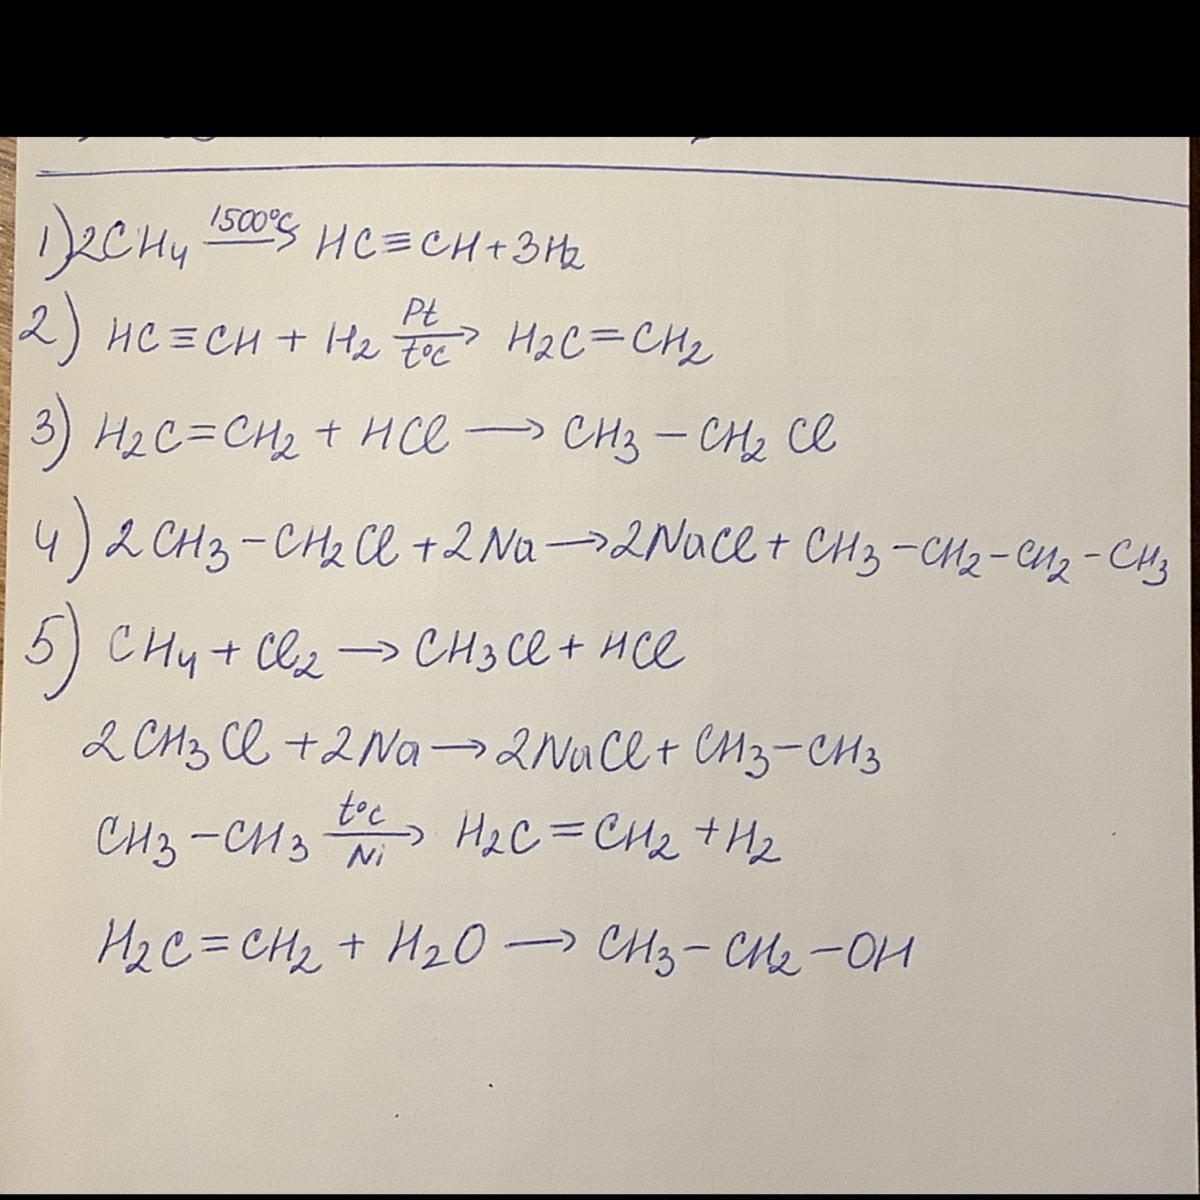 1) 2CH₄ 1500°C → HC≡CH + 3H₂
2) HC≡CH + H₂ Pt → t°C H₂C=CH₂
3) H₂C=CH₂ + HCl → CH₃-CH₂Cl
4) 2CH₃-CH₂Cl + 2Na → 2NaCl + CH₃-CH₂-CH₂-CH₃
5) CH₄ + Cl₂ → CH₃Cl + HCl
2CH₃Cl + 2Na → 2NaCl + CH₃-CH₃
CH₃-CH₃ t°C → Ni H₂C=CH₂ + H₂
H₂C=CH₂ + H₂O → CH₃-CH₂-OH